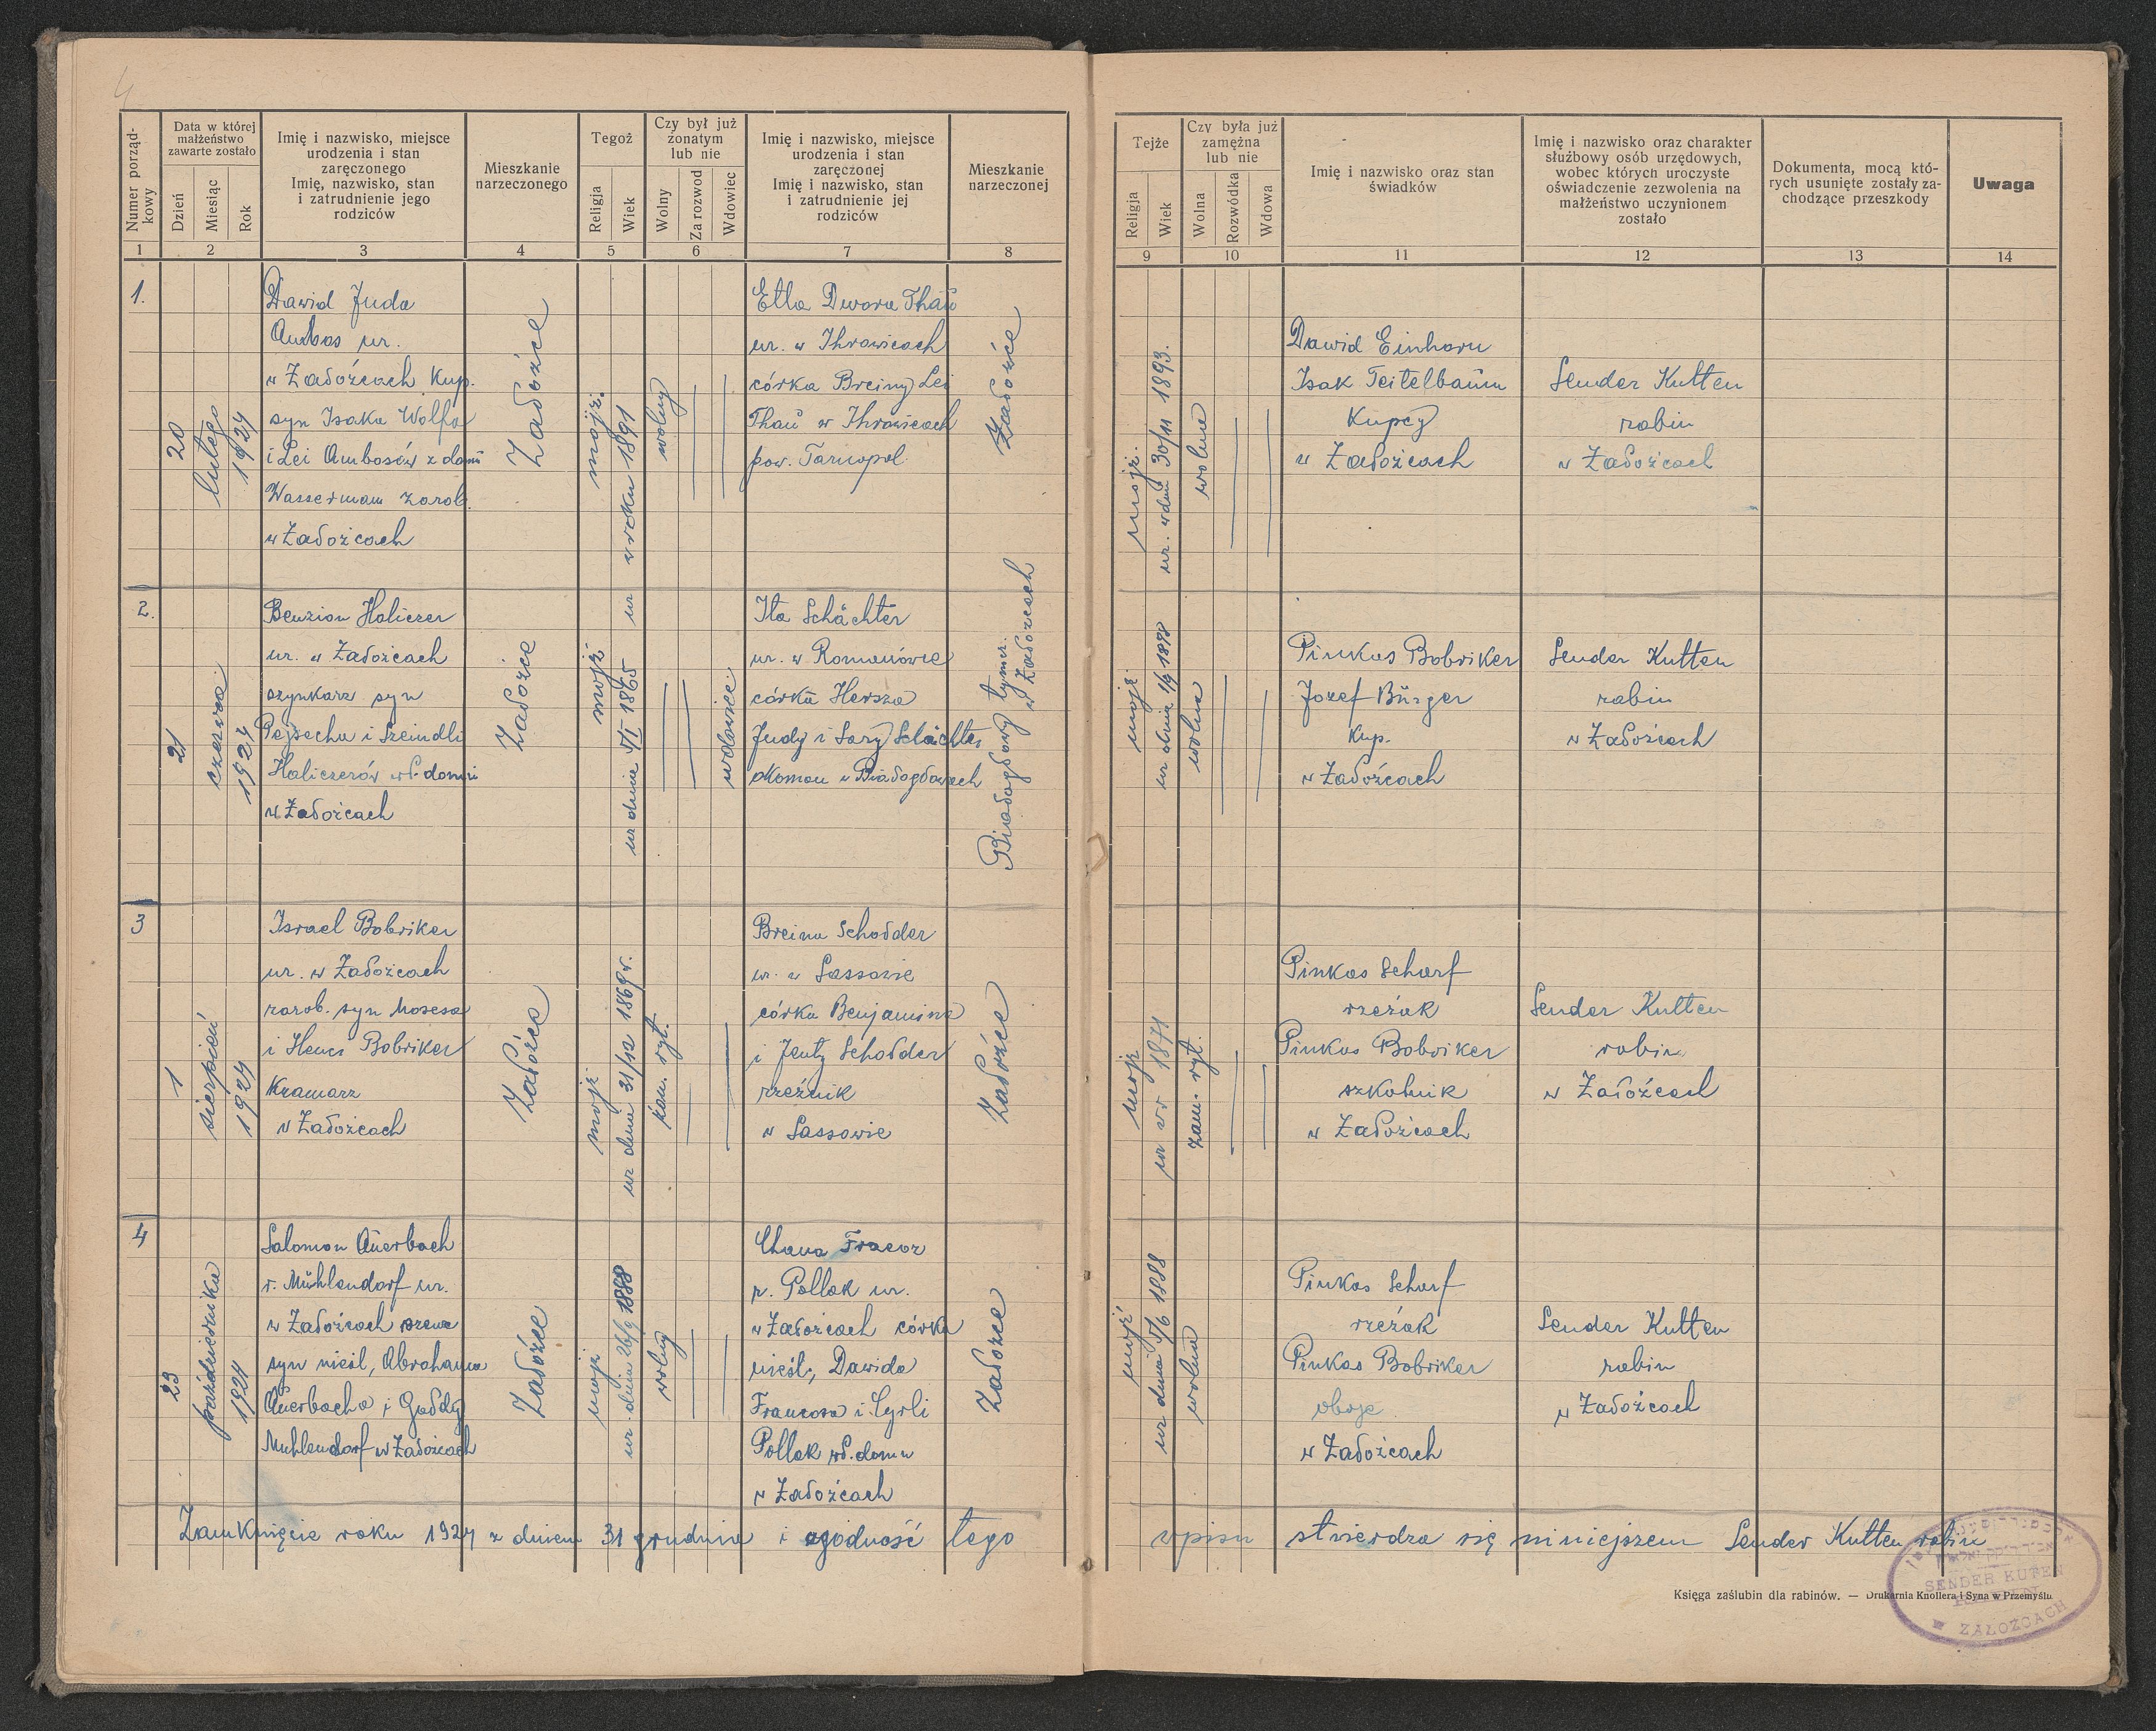 4
Numer porząd-
kowy
Data w której
małżeństwo
zawarte zostało
Dzień
Miesiąc
Rok
Imię i nazwisko, miejsce
urodzenia i stan
zaręczonego
Imię, nazwisko, stan
i zatrudnienie jego
rodziców
Mieszkanie
narzeczonego
Tegoż
Religja
Wiek
Czy był już
żonatym
lub nie
Wolny
Za rozwod
Wdowiec
Imię i nazwisko, miejsce
urodzenia i stan
zaręczonej
Imię i nazwisko, stan
i zatrudnienie jej
rodziców
Mieszkanie
narzeczonej
Tejże
Religja
Wiek
Czy była już
zamężna
lub nie
Wolna
Rozwódka
Wdowa
Imię i nazwisko oraz stan
świadków
Imię i nazwisko oraz charakter
służbowy osób urzędowych,
wobec których uroczyste
oświadczenie zezwolenia na
małżeństwo uczynionem
zostało
Dokumenta, mocą któ-
rych usunięte zostały za-
chodzące przeszkody
Uwaga
1 2 3 4 5 6 7 8 9 10 11 12 13 14
1.
20
lutego
1924
Dawid Juda
Ambos ur.
w Załoźcach kup.
syn Isaka Wolfa
i Lei Ambosów z domu
Wasserman zarob.
w Załoźcach
Załoźce
mojż.
ur w roku 1891
wolny
Etla Dwora Thau
ur. w Ihrowicach
córka Breiny Lei
Thau w Ihrowicach
pow. Tarnopol.
Załoźce
mojż.
ur. w dniu 30/11 1893.
wolna
Dawid Einhorn
Isak Teitelbaum
kupcy
w Załoźcach
Sender Kutten
rabin
w Załoźcach
2.
21
czerwca
1924
Benzion Haliczer
ur. w Załoźcach
szynkarz syn
Pejsecha i Szeindli
Haliczerów wł. domu
w Załoźcach
Załoźce
mojż
ur dnia 5/I 1865
wdowiec
Ita Schächter
ur. w Romanówce
córka Hersza
Judy i Sary Schächter
w Białogłowach
Białogłowy tymcz.
w Załoźcach
mojż
ur dnia 1/9 1898
wolna
Pinkas Bobriker
Jozef Bürger
kup.
w Załoźcach
Sender Kutten
rabin
w Załoźcach
3
1
sierpień
1924
Israel Bobriker
ur. w Załoźcach
zarob. syn Mosesa
i Henci Bobriker
kramarz
w Załoźcach
Załoźce
mojż
ur dnia 31/12 1869 r.
żon. ryt.
Breina Schodder
ur. w Sassowie
córka Benjamina
i Jenty Schodder
rzeźnik
w Sassowie
Załoźce
mojż
ur w r 1871
zam. ryt.
Pinkas Scharf
rzeźak
Pinkas Bobriker
szkolnik
w Załoźcach
Sender Kutten
rabin
w Załoźcach
4
23
październiku
1924
Salomon Auerbach
r. Mühlendorf ur.
w Załoźcach szewc
syn nieśl, Abrahama
Auerbacha i Gołdy
Muhlendorf w Załoźcach
Załoźce
mojż
ur. dnia 26/9 1888
wolny
Chana Francoz
r. Pollak ur.
w Załoźcach córka
nieśl, Dawida
Francoza i Cyrli
Pollak wł. domu
w Załoźcach
Załoźce
mojż
ur dnia 5/6 1888
wolna
Pinkas Scharf
rzeźak
Pinkas Bobriker
oboje
w Załoźcach
Sender Kutten
rabin
w Załoźcach
Zamknięcie roku 1924 z dniem 31 grudnia i zgodność tego wpisu stwierdza się niniejszem Sender Kutten rabin
SENDER KUTEN
W ZAŁOŹCACH
Księga zaślubin dla rabinów. — Drukarnia Knollera i Syna w Przemyślu